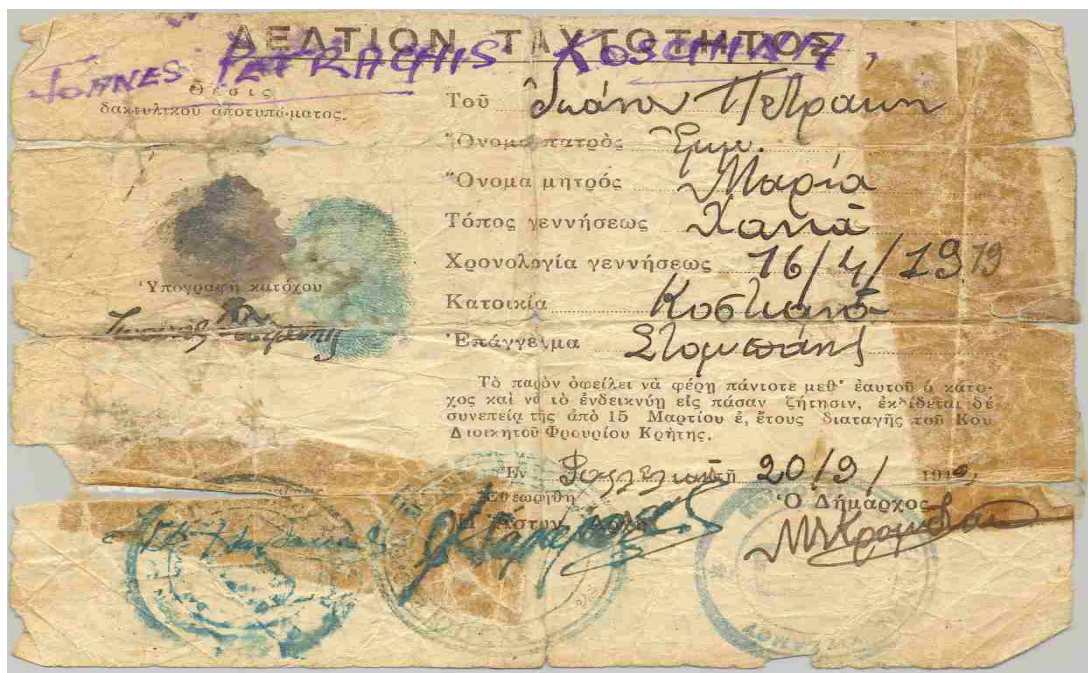 ΔΕΛΤΙΟΝ ΤΑΥΤΟΤΗΤΟΣ
JOANES PETRACHIS KOSCHINA
Θέσις
δακτυλικοῦ ἀποτυπώματος.
Τοῦ Ἰωάνου Πετράκη
Ὄνομα πατρὸς Ἐμμ.
Ὄνομα μητρός Μαρία
Τόπος γεννήσεως Χανιά
Χρονολογία γεννήσεως 16/4/1919
Ὑπογραφὴ κατόχου
Κατοικία
Ἐπάγγελμα
Τὸ παρὸν ὀφείλει νὰ φέρῃ πάντοτε μεθ' ἑαυτοῦ ὁ κάτο-
χος καὶ νὰ τὸ ἐνδεικνύῃ εἰς πᾶσαν ζήτησιν, ἐκδίδεται δὲ
συνεπείᾳ τῆς ἀπὸ 15 Μαρτίου ἐ, ἔτους διαταγῆς τοῦ Κου
Διοικητοῦ Φρουρίου Κρήτης.
Ἐν τῇ 20/9/
Ἐθεωρήθη Ὁ Δήμαρχος